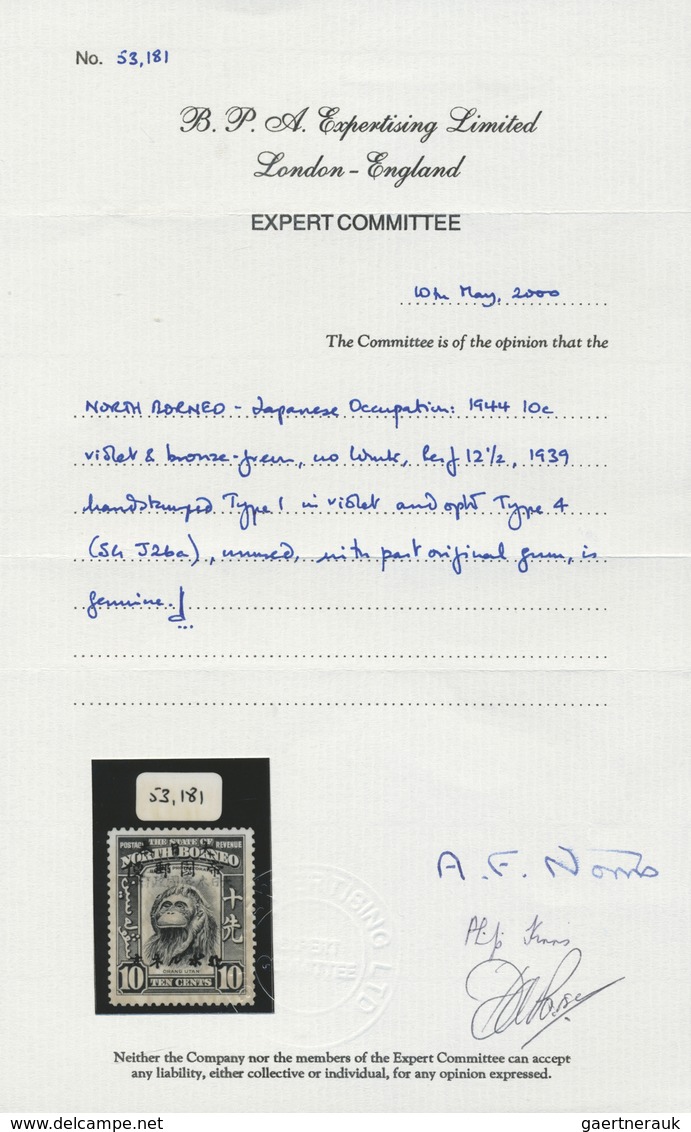 No. 53,181
B. P. A. Expertising Limited
London - England
EXPERT COMMITTEE
10th May, 2000
The Committee is of the opinion that the
NORTH BORNEO - Japanese Occupation: 1944 10c
violet & bronze-green, no wmk, Perf 12½, 1939
handstamped Type 1 in violet and optd Type 4
(SG J26a), unused, with part original gum, is
genuine.
53,181
POSTAGE THE STATE OF REVENUE
NORTH BORNEO
十先
ORANG UTAN
10 TEN CENTS 10
A. F. Norris
Neither the Company nor the members of the Expert Committee can accept
any liability, either collective or individual, for any opinion expressed.
delcampe.net
gaertnerauk